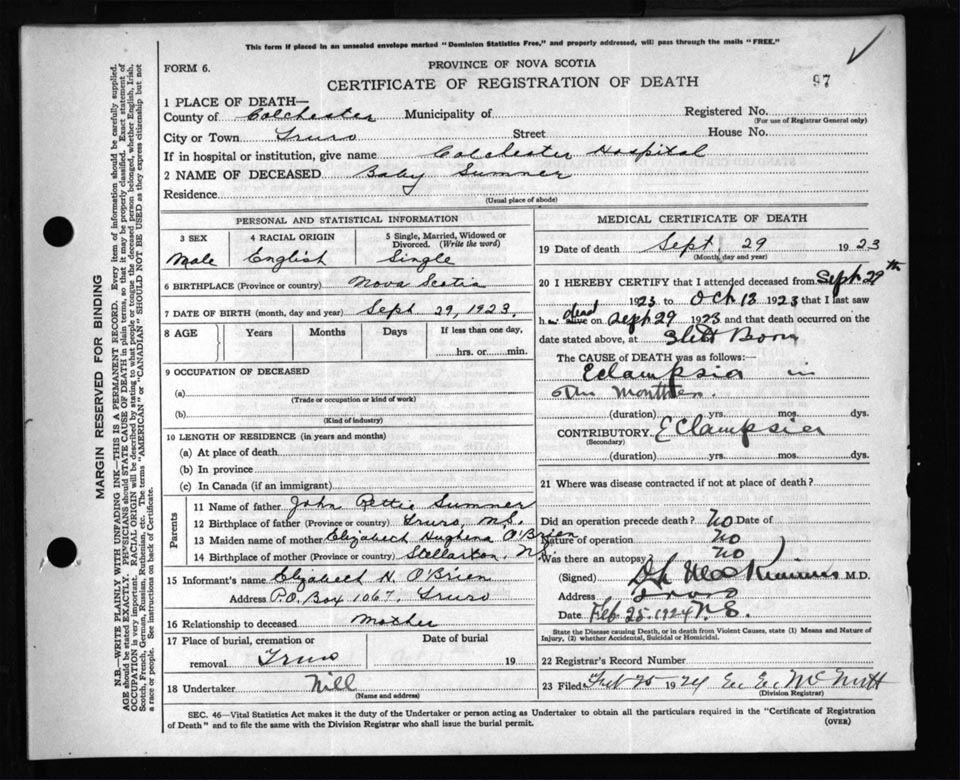 This form if placed in an unsealed envelope marked "Dominion Statistics Free," and properly addressed, will pass through the mails "FREE."
FORM 6.
PROVINCE OF NOVA SCOTIA
CERTIFICATE OF REGISTRATION OF DEATH
97
1 PLACE OF DEATH—
County of Colchester Municipality of Registered No.
(For use of Registrar General only)
City or Town Truro Street House No.
If in hospital or institution, give name Colchester Hospital
2 NAME OF DECEASED Baby Sumner
Residence
(Usual place of abode)
PERSONAL AND STATISTICAL INFORMATION
3 SEX 4 RACIAL ORIGIN 5 Single, Married, Widowed or Divorced. (Write the word)
Male English Single
6 BIRTHPLACE (Province or country) Nova Scotia
7 DATE OF BIRTH (month, day and year) Sept 29, 1923.
8 AGE Years Months Days If less than one day,
hrs. or min.
9 OCCUPATION OF DECEASED
(a)
(Trade or occupation or kind of work)
(b)
(Kind of industry)
10 LENGTH OF RESIDENCE (in years and months)
(a) At place of death
(b) In province
(c) In Canada (if an immigrant)
Parents
11 Name of father John Pettie Sumner
12 Birthplace of father (Province or country) Truro, N.S.
13 Maiden name of mother Elizabeth Hughena O'Brien
14 Birthplace of mother (Province or country) Stellarton, N.S.
15 Informant's name Elizabeth H. O'Brien
Address P.O. Box 1067, Truro
16 Relationship to deceased Mother
17 Place of burial, cremation or Date of burial
removal Truro 19
18 Undertaker Nill
(Name and address)
MEDICAL CERTIFICATE OF DEATH
19 Date of death Sept. 29 1923
(Month, day and year)
20 I HEREBY CERTIFY that I attended deceased from Sept 29th
1923 to Oct 13 1923 that I last saw
h dead alive on Sept 29 1923 and that death occurred on the
date stated above, at Still Born
The CAUSE OF DEATH was as follows:—
Eclampsia in
(duration) yrs. mos. dys.
CONTRIBUTORY Eclampsia
(Secondary)
(duration) yrs. mos. dys.
21 Where was disease contracted if not at place of death?
Did an operation precede death? No Date of
Nature of operation No
Was there an autopsy? No
(Signed) M.D.
Address Truro
Date Feb. 25. 1924 N.S.
State the Disease causing Death, or in death from Violent Causes, state (1) Means and Nature of
Injury, (2) whether Accidental, Suicidal or Homicidal.
22 Registrar's Record Number
23 Filed Feb 25 1924 McNutt
(Division Registrar)
SEC. 46—Vital Statistics Act makes it the duty of the Undertaker or person acting as Undertaker to obtain all the particulars required in the "Certificate of Registration
of Death" and to file the same with the Division Registrar who shall issue the burial permit.
(OVER)
MARGIN RESERVED FOR BINDING
N.B.—WRITE PLAINLY WITH UNFADING INK—THIS IS A PERMANENT RECORD. Every item of information should be carefully supplied.
AGE should be stated EXACTLY. PHYSICIANS should STATE CAUSE OF DEATH in plain terms, so that it may be properly classified. Exact statement of
OCCUPATION is very important. RACIAL ORIGIN will be described by stating to what people or tongue the deceased person belonged, whether English, Irish,
Scotch, French, German, Russian, Ruthenian, etc. The terms "AMERICAN" or "CANADIAN" SHOULD NOT BE USED as they express citizenship but not
a race or people. See instructions on back of Certificate.